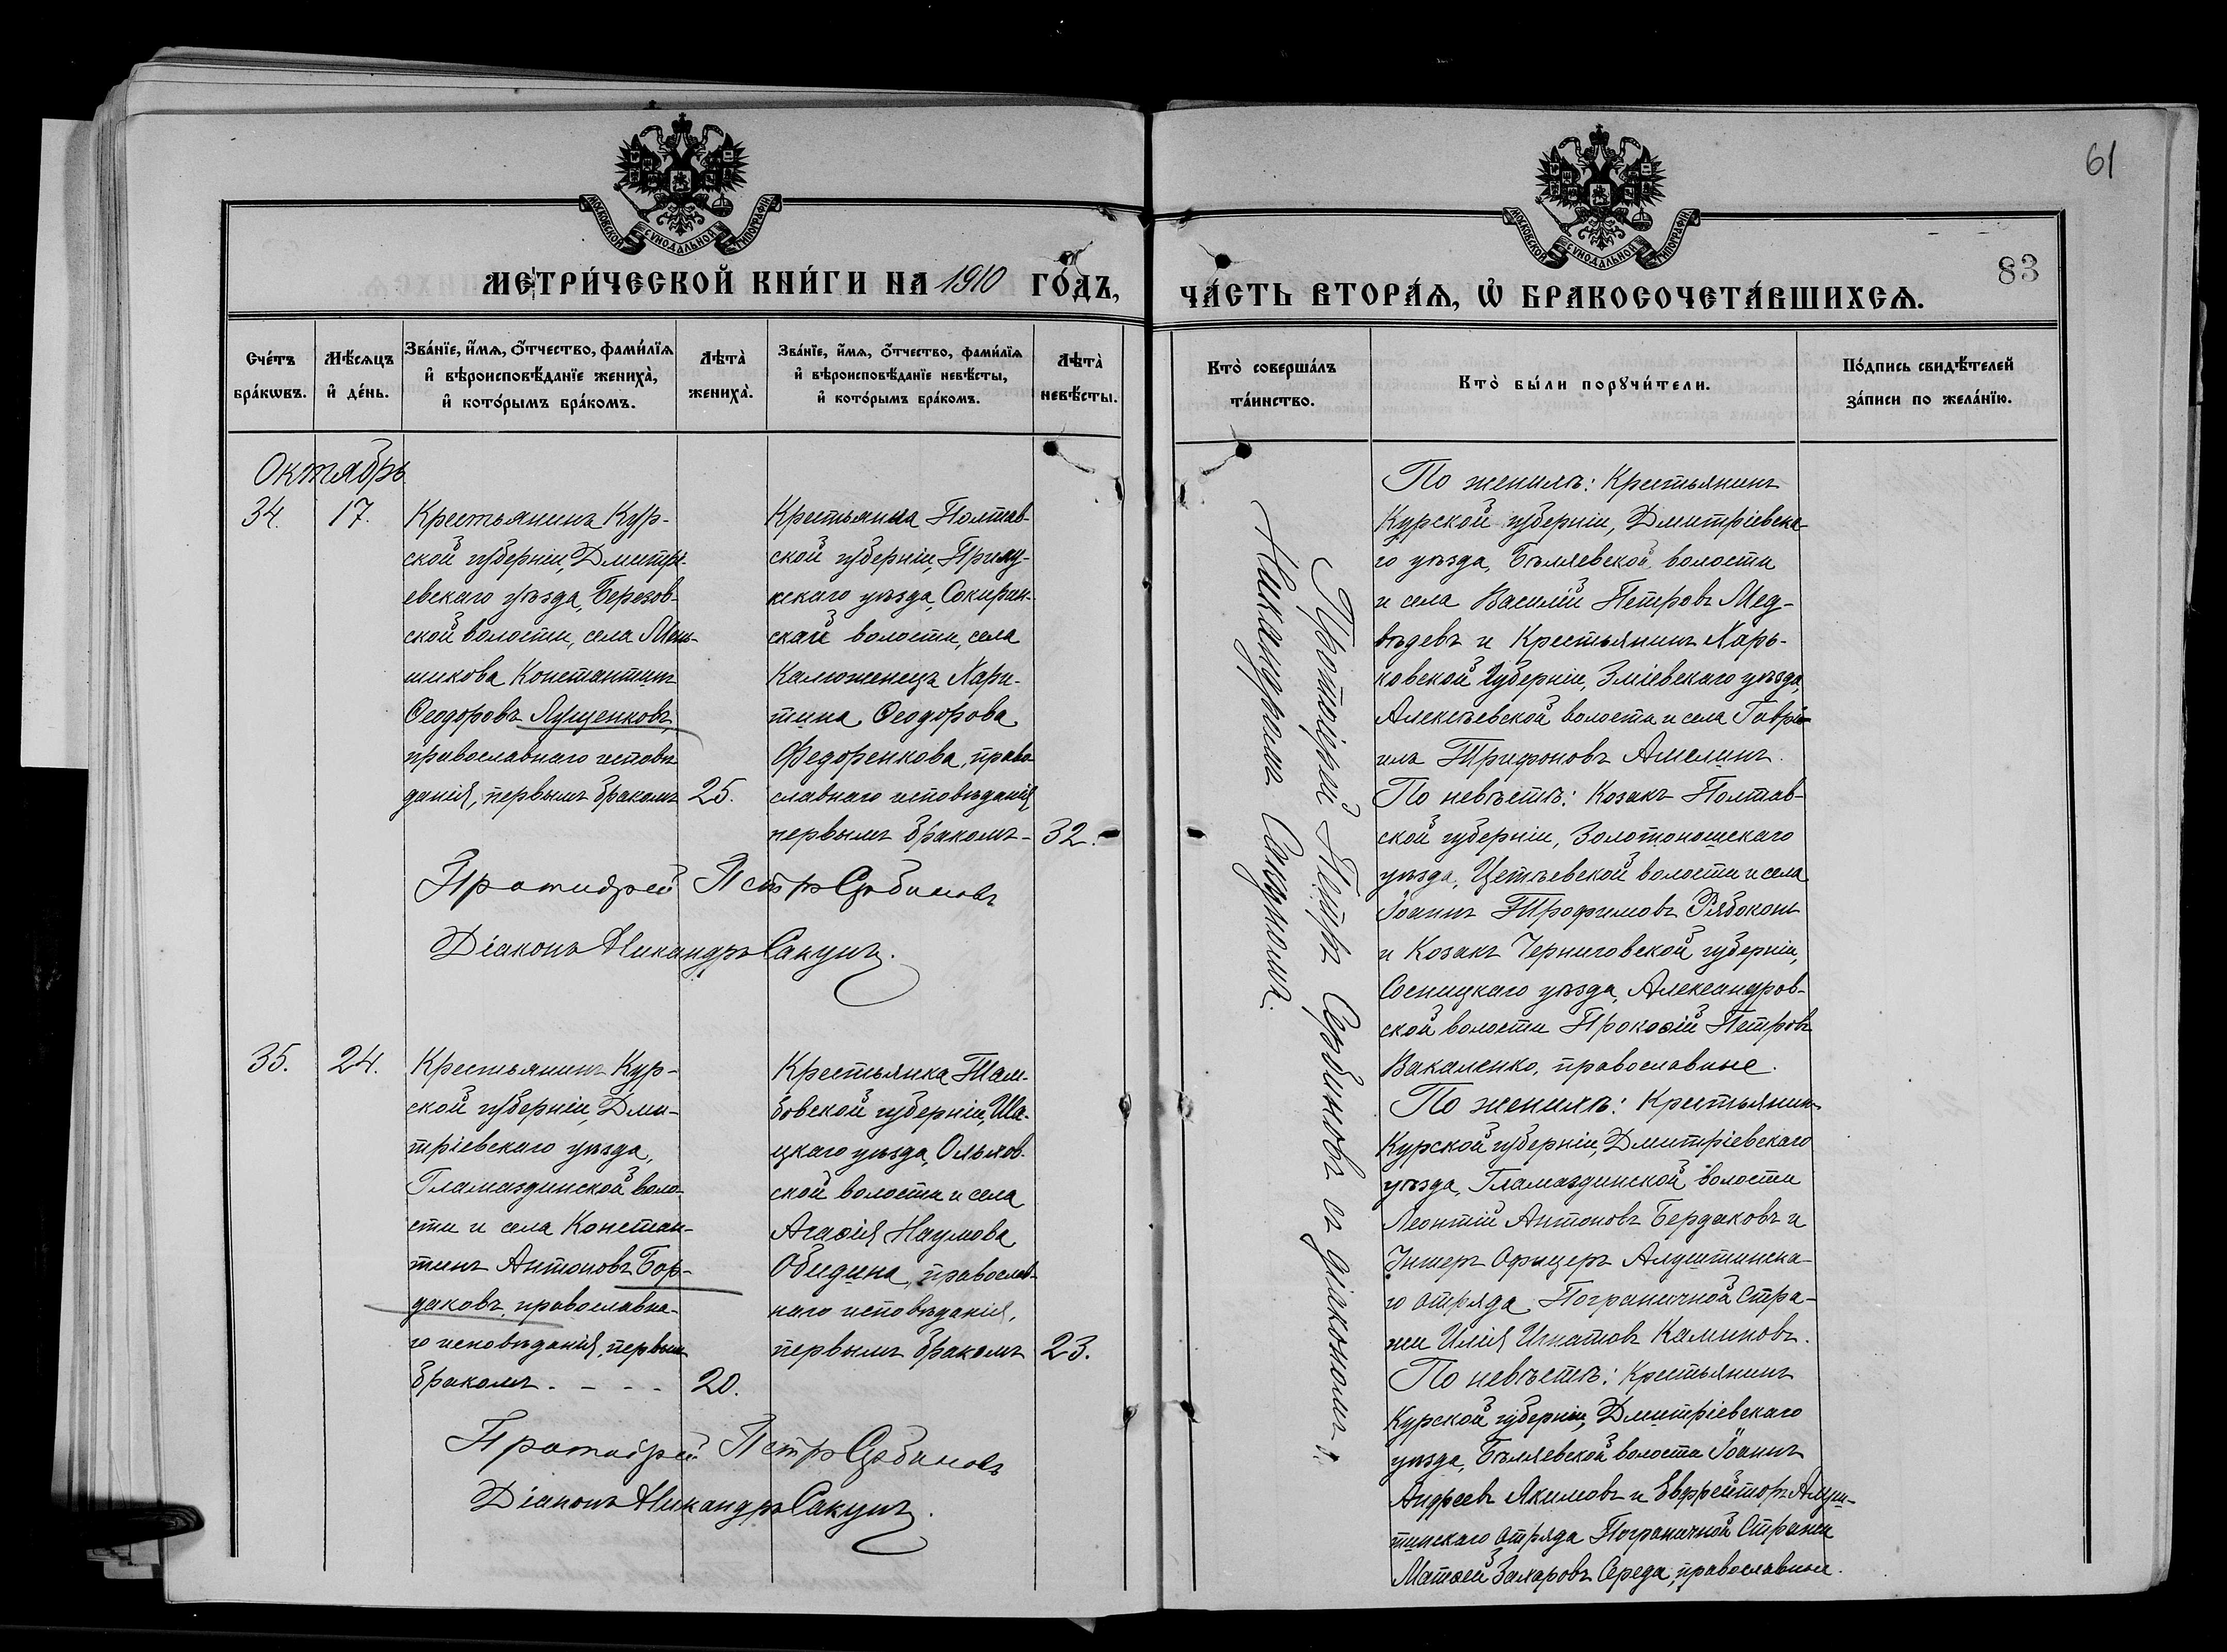 61
83
МОСКОВСКОЙ СѴНОДАЛЬНОЙ ТИПОГРАФІИ
МЕТРИ́ЧЕСКОЙ КНИ́ГИ НА 1910 ГО́ДЪ,
Сче́тъ бра́кѡвъ.
Мѣ́сяцъ и҆ де́нь.
Зва́нїе, и҆́мѧ, ѻ҆́тчество, фами́лїѧ
и҆ вѣроисповѣ́данїе жениха̀,
и҆ кото́рымъ бра́комъ.
Лѣта̀ жениха̀.
Зва́нїе, и҆́мѧ, ѻ҆́тчество, фами́лїѧ
и҆ вѣроисповѣ́данїе невѣ́сты,
и҆ кото́рымъ бра́комъ.
Лѣта̀ невѣ́сты.
Октябрь
34.
17.
Крестьянинъ Кур-
ской губерніи, Дмитрі-
евскаго уѣзда, Березов-
ской волости, села Мень-
шикова Константинъ
Ѳеодоровъ Лущенковъ,
православнаго исповѣ
данія, первымъ бракомъ
25.
Крестьянка Полтав-
ской губерніи, Прилу-
кскаго уѣзда, Сокирин-
ской волости, села
Калюженецъ Хари-
тина Ѳеодорова
Федоренкова, право
славнаго исповѣданія
первымъ бракомъ -
32.
Протоіерей Петръ Сербиновъ
Діаконъ Никандръ Сакунъ.
35.
24.
Крестьянинъ Кур-
ской губерніи, Дми-
тріевскаго уѣзда,
Гламаздинской воло-
сти и села Констан-
тинъ Антоновъ Бор-
даковъ, православна-
го исповѣданія, первымъ
бракомъ. - - -
20.
Крестьянка Там-
бовской губерніи, Ша-
цкаго уѣзда, Ольхов-
ской волости и села
Агаѳія Наумова
Обидина, православ-
наго исповѣданія,
первымъ бракомъ
23.
Протоіерей Петръ Сербиновъ
Діаконъ Никандръ Сакунъ.
МОСКОВСКОЙ СѴНОДАЛЬНОЙ ТИПОГРАФІИ
ЧА́СТЬ ВТОРА́Ѧ, Ѡ҆ БРАКОСОЧЕТА́ВШИХСѦ.
Кто̀ соверша́лъ
та́инство.
Кто̀ бы́ли порꙋчи́тели.
По́дпись свидѣ́телей
за́писи по жела́нїю.
Протоіерей Петръ Сербиновъ съ діакономъ
Никандромъ Сакуномъ.
По женихѣ: Крестьянинъ
Курской губерніи, Дмитріевска-
го уѣзда, Бѣляевской волости
и села Василій Петровъ Мед-
вѣдевъ и Крестьянинъ Харь-
ковской Губерніи, Зміевскаго уѣзда,
Алексѣевской волости и села Гаврі-
илъ Трифоновъ Амелинъ.
По невѣстѣ: Козакъ Полтав-
ской губерніи, Золотоношскаго
уѣзда, волости и села
Іоаннъ Трофимовъ Рябоконь
и Козакъ Черниговской губерніи,
Сосницкаго уѣзда, Александров-
ской волости Прокофій Петровъ
Вакаленко, православные.
По женихѣ: Крестьянинъ
Курской губерніи, Дмитріевскаго
уѣзда, Гламаздинской волости
Леонтій Антоновъ Бердаковъ и
Унтеръ Офицеръ Алуштинска-
го отряда Пограничной Стра-
жи Илія Игнатовъ Калиновъ.
По невѣстѣ: Крестьянинъ
Курской губерніи, Дмитріевскаго
уѣзда, Бѣляевской волости Іоаннъ
Андреевъ Якимовъ и Ефрейторъ Алуш-
тинскаго отряда Пограничной Стражи
Матѳей Захаровъ Середа, православные.